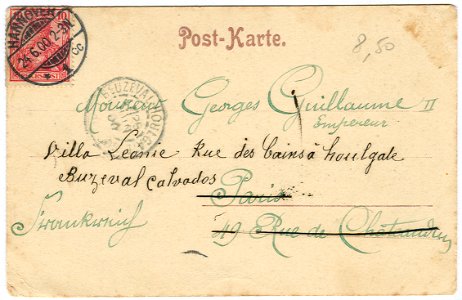 HANNOVER
24.6.00.2-3N.
10
Post-Karte.
8,50
BEUZEVAL HOULGATE
Monsieur Georges Guillaume II
Empereur
Villa Leonie Rue des Bains à houlgate
Buzeval Calvados
Paris
Frankreich
49 Rue de Chateaudun